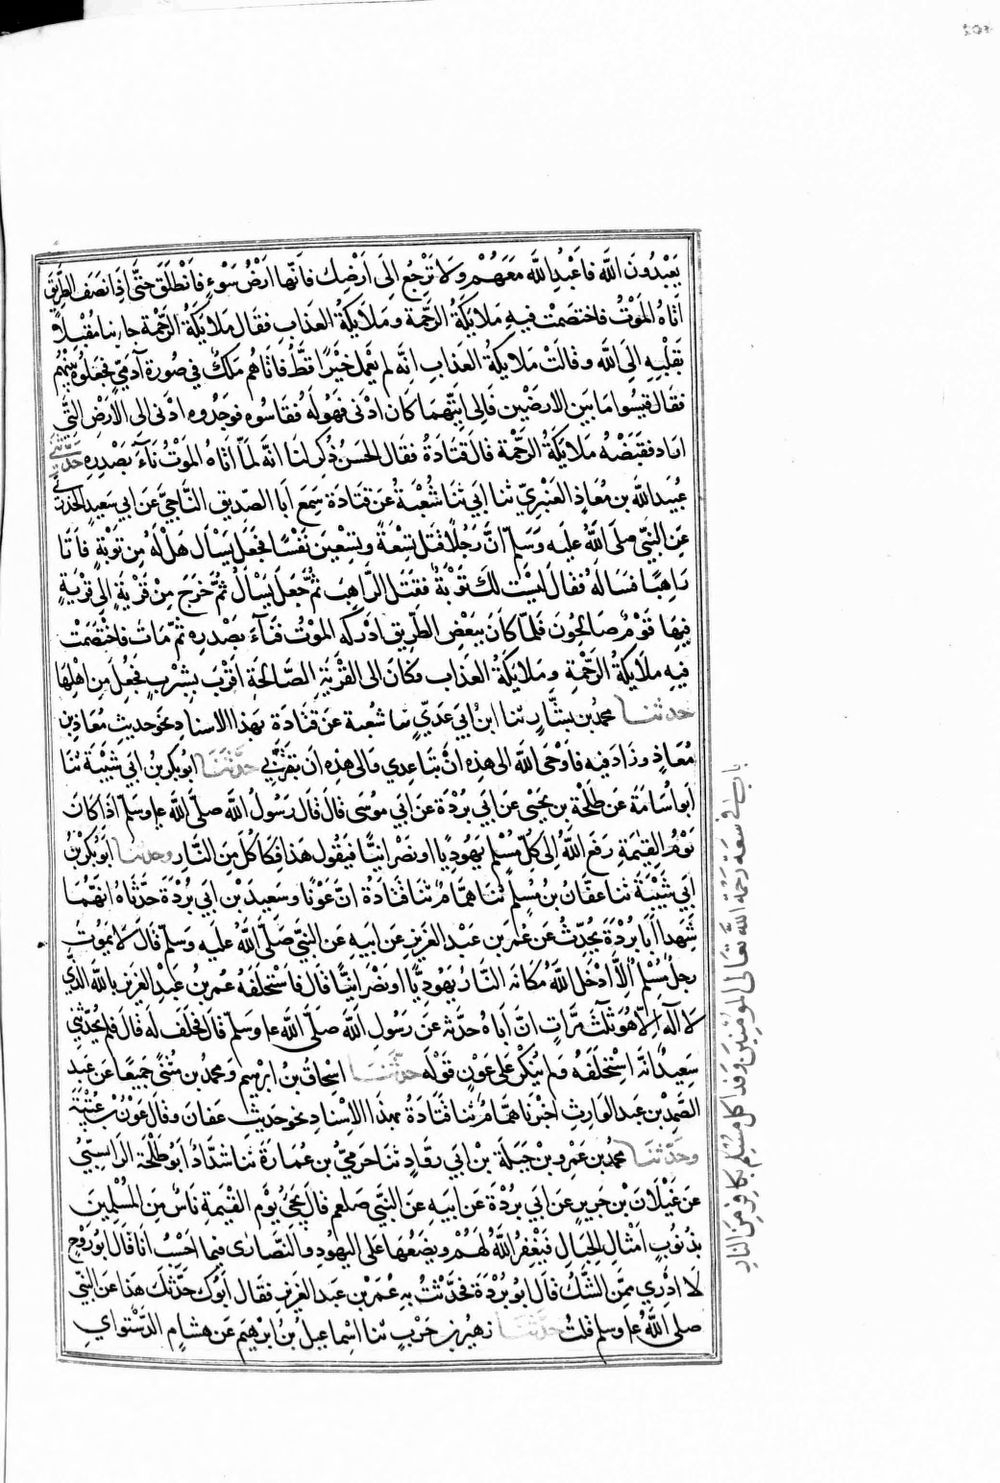 يَعْبُدُونَ اللَّه فاعْبُدِ اللَّه مَعَهُمْ ولا تَرْجِعْ الَى اَرْضِك فَاَنّها ارْضُ سَوْءٍ فَانْطَلَقَ حَتَّى اِذا نَصَفَ الطَّرِيقَ
اَتَاهُ المَوْتُ فاختصَمَتْ فيهِ مَلايكَةُ الرَّحمَة ومَلايكَةُ العَذابِ فقَالَ مَلايكَةُ الرَّحْمة جاءنا مُقْبِلاً
بقَلْبِهِ الِى اللَّه وقالَتْ مَلايكةُ العَذابِ اِنَّه لم يَعْمَل خَيْرًا قَطُّ فَاتاهُم مَلَكٌ في صُورة آدَمِيٍّ فجعَلُوهُ بَيْنَهُم
فقال قيسُوا مَا بَين الارضَيْن فَالِى ايَّتِهمَا كان ادْنى فهُو لَه فقَاسُوه فوَجَدُوه ادْنى الى الاَرْضِ التَّي
اراد فقبَضَتْه مَلايكَةُ الرَّحْمة قال قتَادةُ فقَال الحَسن ذُكِر لنَا انَّه لَمّا اتَاه المَوْتُ نَآءَ بِصَدْرِهِ حَدَّثَني
عُبَيد اللّه بن مُعَاذٍ العَنْبَرِيّ ثنا ابَي ثَنا شُعْبَةُ عَن قتَادة سَمِعَ ابَا الصّدِيق النَّاجِيَّ عَن ابي سَعيدٍ الخدريّ
عَنِ النبّيِ صلى اللَّهُ عليه وَسَلّم انَّ رَجُلًا قتَل تِسْعةً وتِسعينَ نَفْسًا فجَعَل يَسْأل هَل لَهُ مِن تَوْبَةٍ فأتَا
رَاهِبًا فسَالَهُ فقال لَيْسَت لكَ تَوْبَةٌ فقَتَل الرَّاهِبَ ثمَّ جَعَل يَسْاَلُ ثمَّ خَرَجَ مِنْ قَرْيَةٍ الى قَرْيَةٍ
فيهَا قَوْمٌ صَالِحُون فَلمّا كانَ ببَعْضِ الطَّريق ادْركَه المَوْتُ فنَآءَ بصَدْرِهِ ثمّ مَاتَ فاخْتصَمَتْ
فيهِ ملايكَةُ الرَّحْمَة ومَلايكَةُ العَذاب فكَانَ الى القَرْيَةِ الصَّالِحَةِ اَقْرَبَ بِشِبْرٍ فَجُعِلَ مِن اهْلِهَا
حدثنا محمد بن بشَّارٍ ثنا ابنُ ابي عَدِيٍّ ثنا شعبة عن قَتَادَة بهَذا الاسنادِ نَحْوَ حديثِ مُعَاذِ بن
مُعَاذٍ وزَادَ فيهِ فاَوْحَى اللَّه الى هذِه انْ تبَاعِدي والى هذِه ان تقَرَّبي حدَّثنَا ابُو بَكر بنُ ابي شَيْبَةَ ثنَا
اَبو اُسَامَة عَن طلحَة بن يَحْيَى عَن ابي بُرْدةَ عَن ابي مُوسَى قال قال رَسُولُ اللَّه صلّى اللَّه ع وسَلّم اذا كانَ
يَوْمُ القِيمَةِ رَفَع اللَّهُ الى كلِّ مُسْلِمٍ يَهُوديًا او نَصْرانِيًّا فيقُول هَذا فِكَاكُكَ مِنَ النَّارِ وحدثنا ابُو بَكْر بْنُ
ابي شَيْبَة ثنا عفّان بنُ مسْلِمٍ ثنَا همَّامٌ ثنا قَتَادةُ انّ عَوْنًا وسَعِيدَ بْن ابي بُرْدَة حدَّثَاهُ انّهُمَا
شَهِدا ابَا بُرْدَةَ يُحدِّثُ عَن عُمَر بن عَبْد العَزيز عَن ابيهِ عَن النبَّي صلّى اللَّهُ علَيه وَسَلّم قَالَ لا يَمُوتُ
رجلٌ مُسْلِمٌ اِلّاَ ادْخَل اللَّهُ مَكَانَه النَّارَ يَهُودِيًّا او نَصْرانيًّا قال فاسْتَحْلَفَهُ عُمَر بن عَبْدِ العَزيز باللَّه الذَّي
لا اله اِلاَّ هُوَ ثلَاثَ مَرَّاتٍ انّ اَباهُ حدَّثه عَن رَسُولِ اللَّه صلّى اللَّه ع وسَلّم قال فحَلَفَ لَه قالَ فلم يُحَدّثْني
سَعِيدٌ انَّه اسْتَحْلَفَه ولم يُنْكِرْ على عَوْنٍ قَوْلَه حدَّثنَا اسحَاق بن ابرهيم ومُحمد بن مُثنَّى جَميعًا عَن عَبد
الصَّمد بن عَبد الوَارِث اخبَرنا همّامٌ ثنا قتَادةُ بهذا الاسْنادِ نحو حديث عفان وقال عَوْنُ بنُ عُتْبَةَ
وحَدَّثنَا محمد بن عَمْرو بن جَبَلَةَ بن ابي رَوّادٍ ثنا حرَمِيُّ بن عُمَارَة ثنا شدّادٌ ابو طلْحَة الرَاسِبِيُّ
عَن غَيْلاَنَ بن جَريرٍ عن ابي بُردَة عَن ابيَه عَن النبَّي صَلعم قال يَجِيُ يَوْم القيْمَةِ نَاسٌ مِنَ المُسْلِمينَ
بذنُوبٍ امثَالِ الجِبَالِ فيَغْفِرُ اللَّهُ لَهُمْ ويَضَعُهَا عَلَى اليَهُودِ والنَّصَارى فيما احْسبُ انَا قَالَ ابُو رَوْحٍ
لا ادْرِي مِمَّن الشَّكُّ قالَ ابُو بُرْدَةَ فحَدَّثْتُ بهِ عُمَر بن عَبد العَزيز فقَال أَبُوك حَدّثَكَ هَذا عَن النبّي
صلى اللَّهُ ع وسَلم قلت حَدَّثنَا زهيرُ بن حَرْبٍ ثنا اسْمَاعيلُ بنُ ابرْهِيمَ عَن هِشامٍ الدَّسْتوايِ
باب في سعَة رَحْمَة اللَّه تعَالى لِلْمُؤْمِنِينَ وفداءِ كل مسْلِم بكافِرٍ مِنَ النارِ